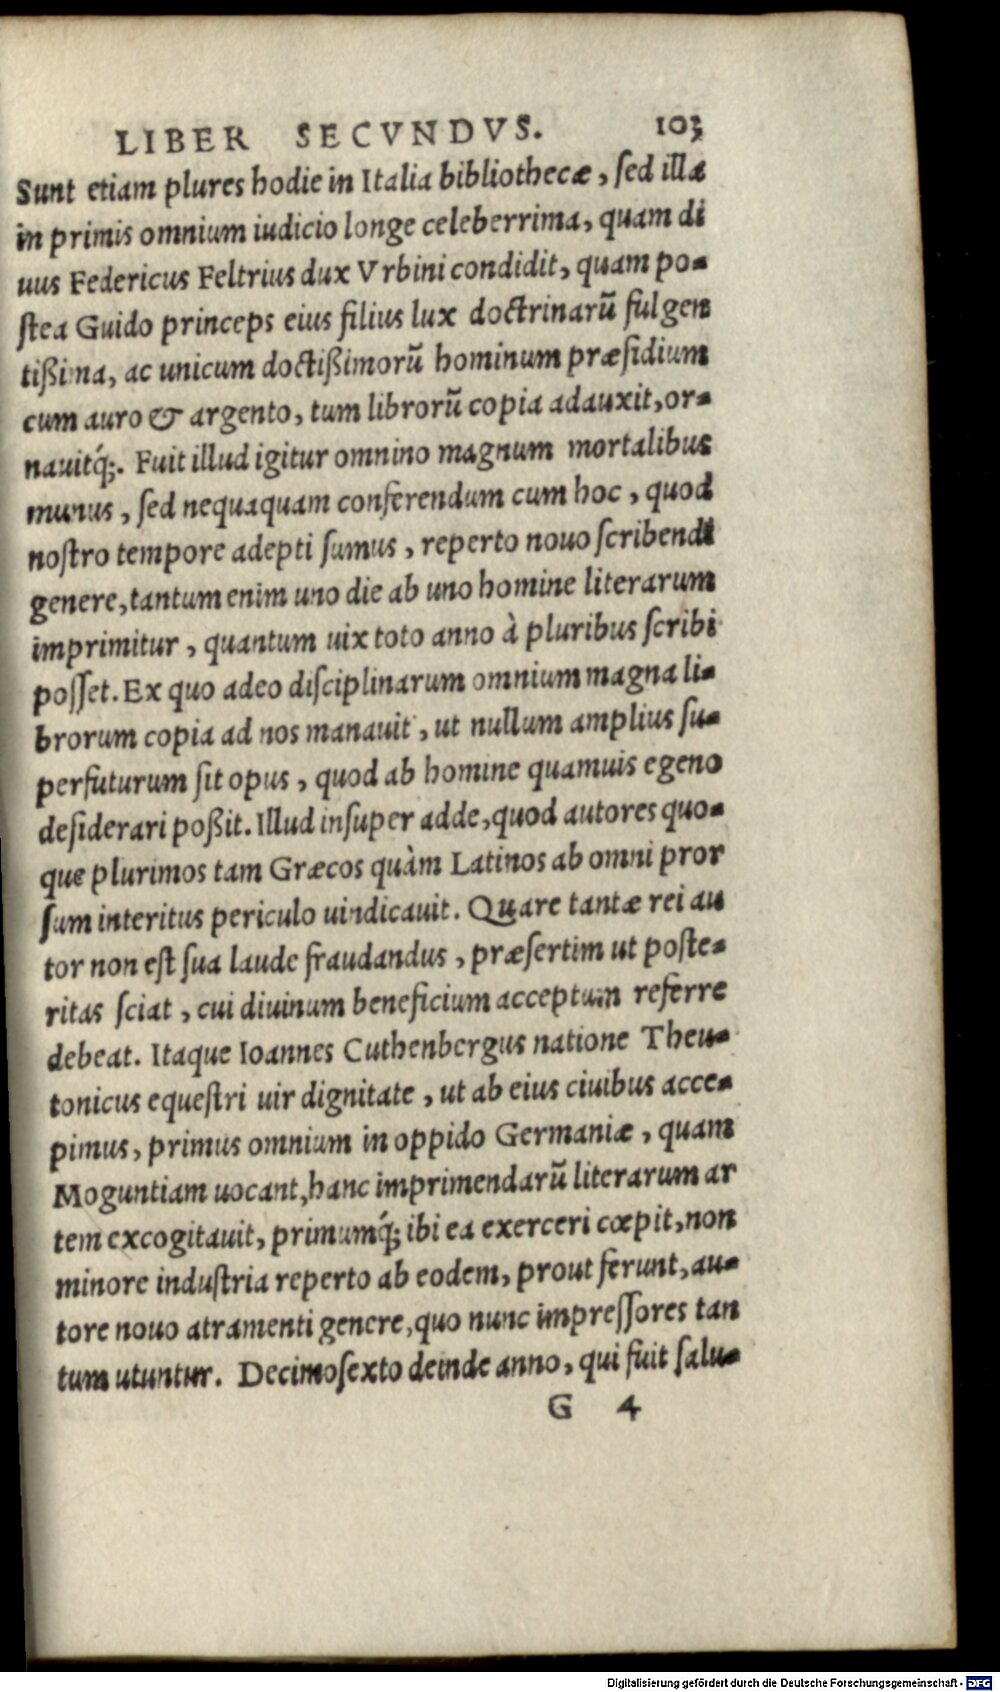 LIBER SECVNDVS. 103
Sunt etiam plures hodie in Italia bibliothecæ, sed illa
in primis omnium iudicio longe celeberrima, quam di
uus Federicus Feltrius dux Vrbini condidit, quam po-
stea Guido princeps eius filius lux doctrinarũ fulgen
tißima, ac unicum doctißimorũ hominum præsidium
cum auro & argento, tum librorũ copia adauxit, or-
nauitq́;. Fuit illud igitur omnino magnum mortalibus
munus, sed nequaquam conferendum cum hoc, quod
nostro tempore adepti sumus, reperto nouo scribendi
genere, tantum enim uno die ab uno homine literarum
imprimitur, quantum uix toto anno à pluribus scribi
posset. Ex quo adeo disciplinarum omnium magna li-
brorum copia ad nos manauit, ut nullum amplius su-
perfuturum sit opus, quod ab homine quamuis egeno
desiderari poßit. Illud insuper adde, quod autores quo-
que plurimos tam Græcos quàm Latinos ab omni pror
sum interitus periculo uindicauit. Quare tantæ rei au
tor non est sua laude fraudandus, præsertim ut poste-
ritas sciat, cui diuinum beneficium acceptum referre
debeat. Itaque Ioannes Cuthenbergus natione Theu-
tonicus equestri uir dignitate, ut ab eius ciuibus acce-
pimus, primus omnium in oppido Germaniæ, quam
Moguntiam uocant, hanc imprimendarũ literarum ar
tem excogitauit, primumq́; ibi ea exerceri cœpit, non
minore industria reperto ab eodem, prout ferunt, au-
tore nouo atramenti genere, quo nunc impressores tan
tum utuntur. Decimosexto deinde anno, qui fuit salu-
G 4
Digitalisierung gefördert durch die Deutsche Forschungsgemeinschaft - DFG